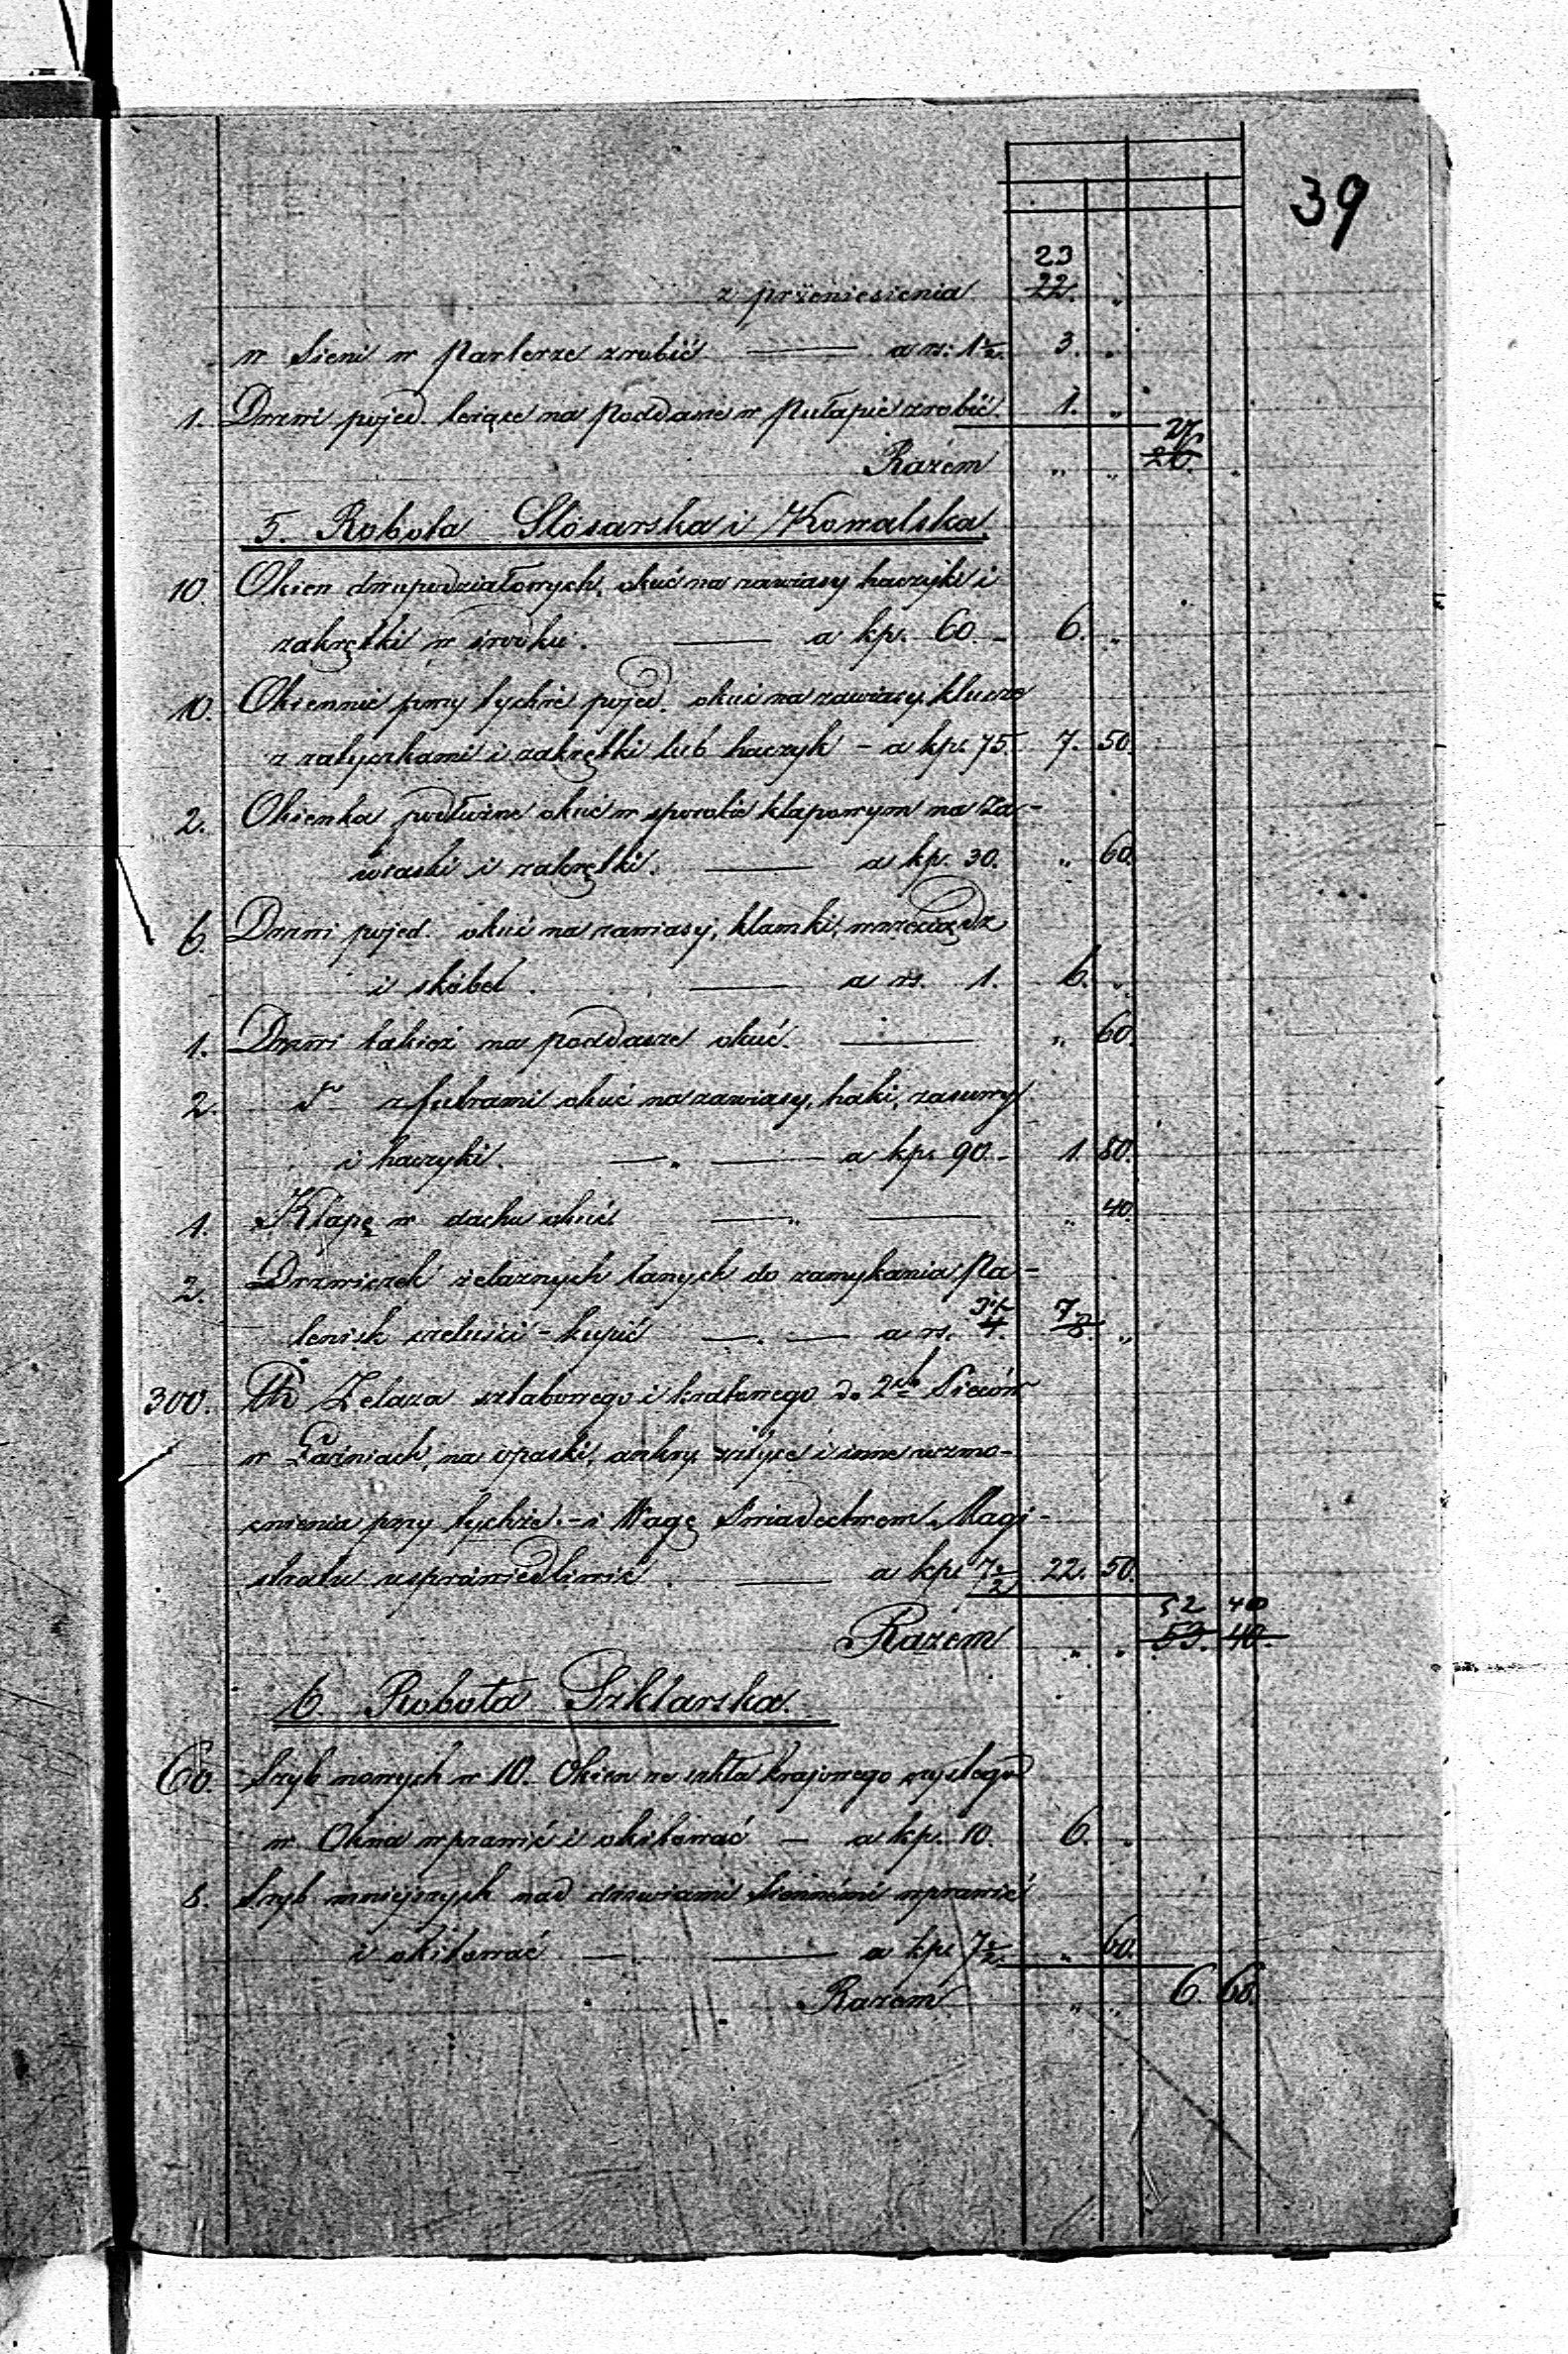 39
23
z przeniesienia 22. "
w Sieni w Parterze zrobić — a rs: 1 1/2. 3. "
1. Drzwi pojed. leżące na Poddasze w Pułapie zrobić. 1. "
27
Razem " " 26. "
5. Robota Slósarska i Kowalska.
10. Okien dwupodziałowych, okuć na zawiasy haczyki i
zakrętki w środku. — a kp. 60. - 6. "
10. Okiennic przy tychże pojed. okuć na zawiasy, klucze
z zatyczkami i zakrętki lub haczyk - a kp. 75. 7. 50
2. Okienka podłużne okuć w sposobie klapowym na za-
wiaski i zakrętki. — a kp. 30. " 60.
6. Drzwi pojed. okuć na zawiasy, klamki, wrzeciądz
i skobel. — a rs. 1. 6. "
1. Drzwi takież na poddasze okuć. — " 60.
2. dº z futrami okuć na zawiasy, haki, zasuwy
i haczyki. — " — a kp. 90. - 1. 80.
1. Klapę w dachu okuć. — " — " 40.
2. Drzwiczek żelaznych lanych do zamykania Pa-
lenisk czeluści - kupić — . — a rs. 3 1/2 4. 7. 8. "
300. ℔ Żelaza sztabowego i kratowego do 2ch Pieców
w Łaźniach, na opaski, ankry, i inne wzmo-
cnienia przy tychże. - i Wagę Świadectwem Magi-
stratu usprawiedliwić. — a kp. 7 1/2 22. 50.
52 40
Razem " " 53. 40.
6. Robota Szklarska.
60. Szyb nowych w 10. Okien ze szkła krajowego czystego
w Okna wprawić i okitować — a kp. 10. 6. "
8. Szyb mniejszych nad drzwiami Siennémi wprawić
i okitować — — a kp. 7 1/2. " 60.
Razem " " 6. 60.